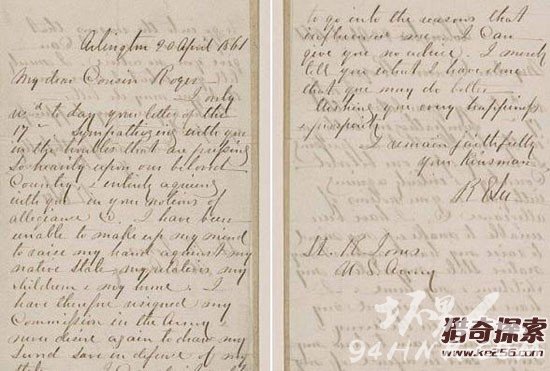 Arlington 20 April 1861
My dear Cousin Roger
I only
rec'd to day your letter of the
17th. Sympathizing with you
in the troubles that are pressing
so heavily upon our beloved
Country, & entirely agreeing
with you in your notions of
allegiance &c. I have been
unable to make up my mind
to raise my hand against my
native State, my relatives, my
children & my home. I
have therefore resigned my
Commission in the Army &
never desire again to draw my
Sword save in defence of my
to go into the reasons that
influenced me. I Can
give you no advice. I merely
tell you what I have done
that you may do better
Wishing you every happiness
& prosperity
I remain faithfully
your Kinsman
R E Lee
Jones
U. S. Army
坏男人
94HN
猎奇探索
www.ke256.com